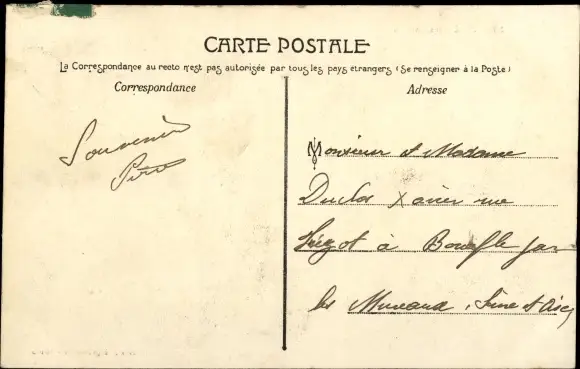 CARTE POSTALE
La Correspondance au recto n'est pas autorisée par tous les pays étrangers (Se renseigner à la Poste)
Correspondance
Adresse
Souvenir
Monsieur et Madame
Duclos Xavier rue
à Bouafle par
les Mureaux, Seine et Oise